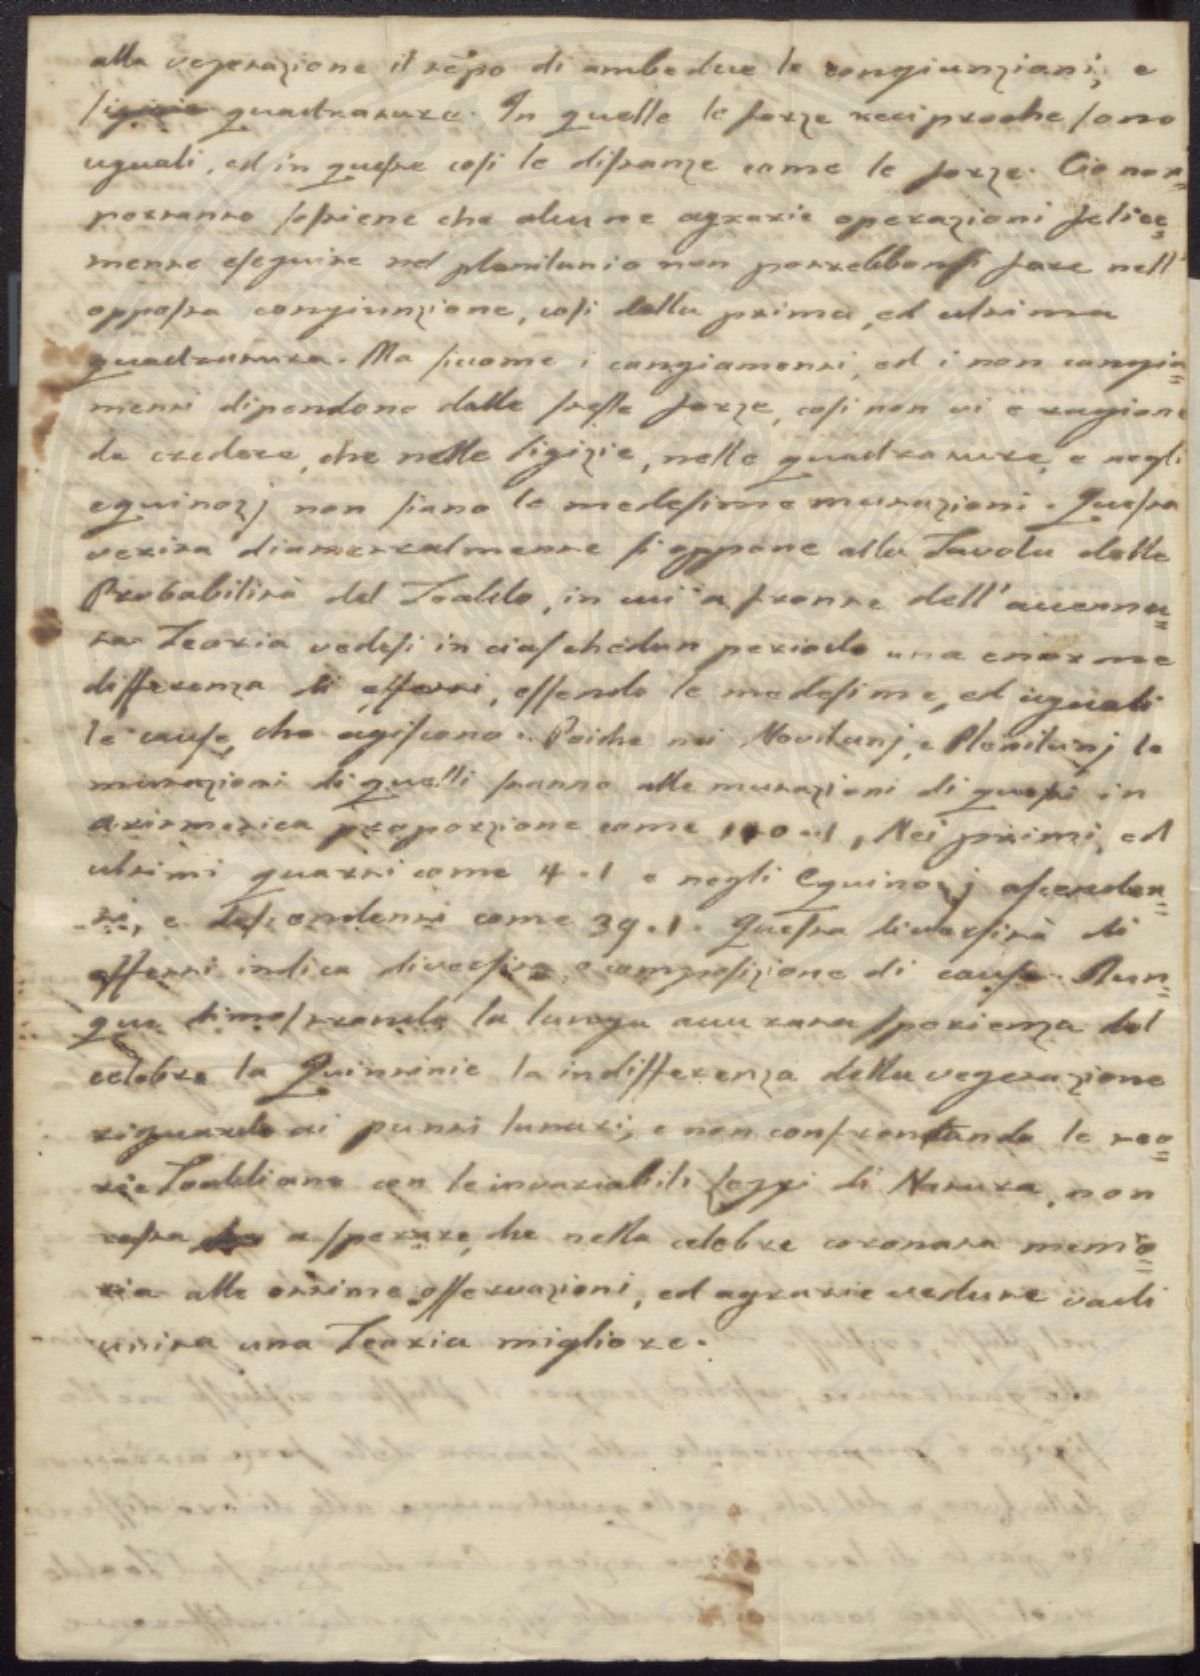 alla vegetazione il tēpo di ambedue le congiunzioni, e
sigizie quadrature. In quelle le forze reciproche sono
uguali, ed in queste così le distanze come le forze. Ciò non=
pertanto sostiene che alcune agrarie operazioni felice=
mente eseguite nel plenilunio non potrebbonsi fare nell'
opposta congiunzione, così della prima, ed ultima
quadratura. Ma siccome i cangiamenti, ed i non cangia=
menti dipendono dalle stesse forze, così non vi è ragione
da credere, che nelle sigizie, nelle quadrature, e negli
equinozj non siano le medesime mutazioni. Questa
verità diametralmente si oppone alla Tavola delle
Probabilità del Toaldo, in cui a fronte dell'accenna=
ta Teoria vedesi in ciaschedun periodo una enorme
differenza di effetti, essendo le medesime, ed uguali
le cause, che agiscono. Poichè nei Novilunj, e Plenilunj le
mutazioni di quelli stanno alle mutazioni di questi in
aritmetica proporzione come 1, Nei primi, ed
ultimi quarti come 4.1 e negli Equinozj ascenden=
ti, e descendenti come 39.1. Questa diversità di
effetti indica diversità, e composizione di cause. Dun=
que dimostrando la lunga accurata sperienza del
celebre la Quintinie la indifferenza della vegetazione
riguardo ai punti lunari, e non confrontando le teo=
rie Toaldiane con le invariabili leggi di Natura, non
resta a sperare, che nella celebre coronata memo=
ria alle ottime osservazioni, ed agrarie vedute vadi
unita una Teoria migliore.